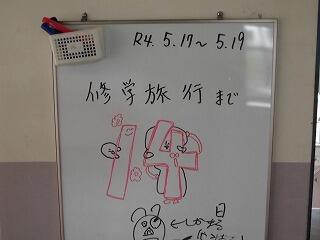 R4. 5.17〜 5.19
修学旅行まで
14
日
←しかも